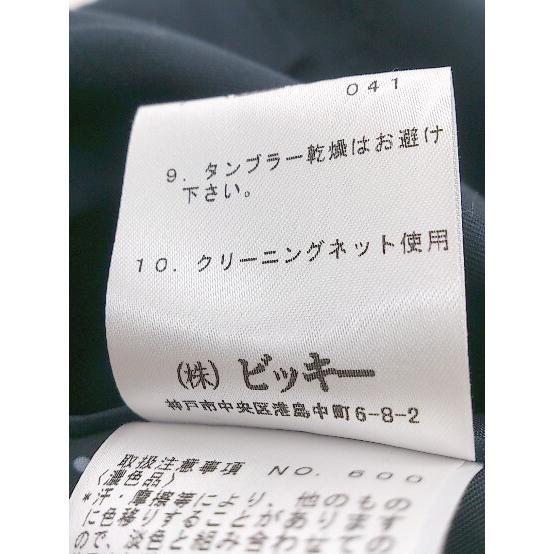 041
9. タンブラー乾燥はお避け
下さい。
10. クリーニングネット使用
(株) ビッキー
神戸市中央区港島中町6-8-2
取扱注意事項 NO. 600
〈濃色品〉
*汗・摩擦等により、他のもの
に色移りすることがあります
ので、淡色と組み合わせての